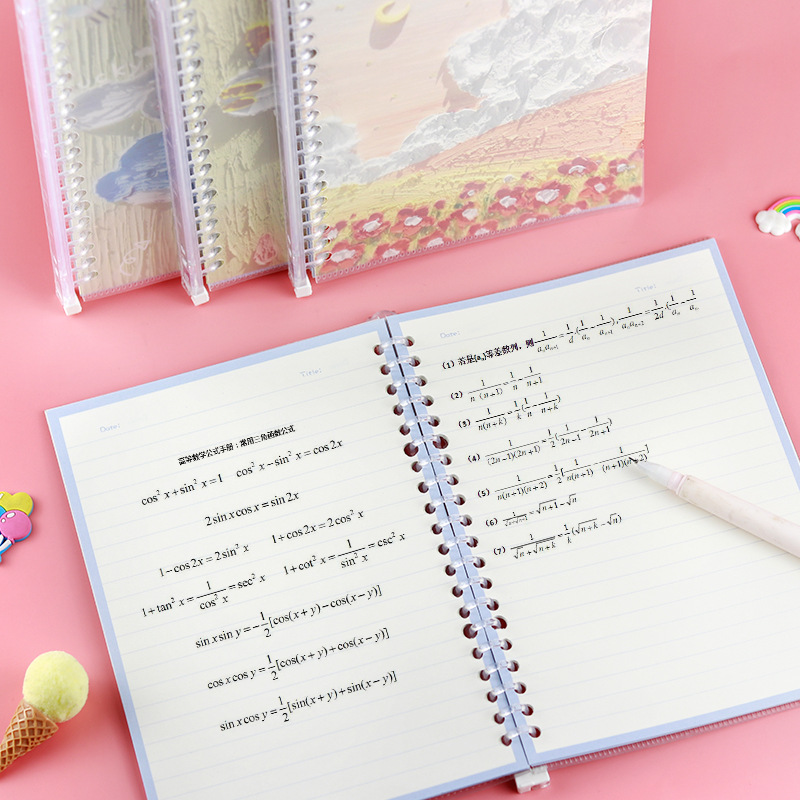 Date:
Title:
高等数学公式手册：常用三角函数公式
cos² x + sin² x = 1 cos² x − sin² x = cos 2x
2 sin x cos x = sin 2x
1 − cos 2x = 2 sin² x 1 + cos 2x = 2 cos² x
1 + tan² x = 1/cos² x = sec² x 1 + cot² x = 1/sin² x = csc² x
sin x sin y = −1/2[cos(x + y) − cos(x − y)]
cos x cos y = 1/2[cos(x + y) + cos(x − y)]
sin x cos y = 1/2[sin(x + y) + sin(x − y)]
Date:
Title:
（1）若是{aₙ}等差数列，则 1/(aₙaₙ₊₁) = 1/d·(1/aₙ − 1/aₙ₊₁), 1/(aₙaₙ₊₂) = 1/2d·(1/aₙ − 1/aₙ
（2） 1/n(n+1) = 1/n − 1/(n+1)
（3） 1/n(n+k) = 1/k(1/n − 1/(n+k))
（4） 1/(2n−1)(2n+1) = 1/2(1/(2n−1) − 1/(2n+1))
（5） 1/n(n+1)(n+2) = 1/2[1/n(n+1) − 1/(n+1)(n+2)]
（6） 1/(√n+√(n+1)) = √(n+1) − √n
（7） 1/(√n+√(n+k)) = 1/k(√(n+k) − √n)